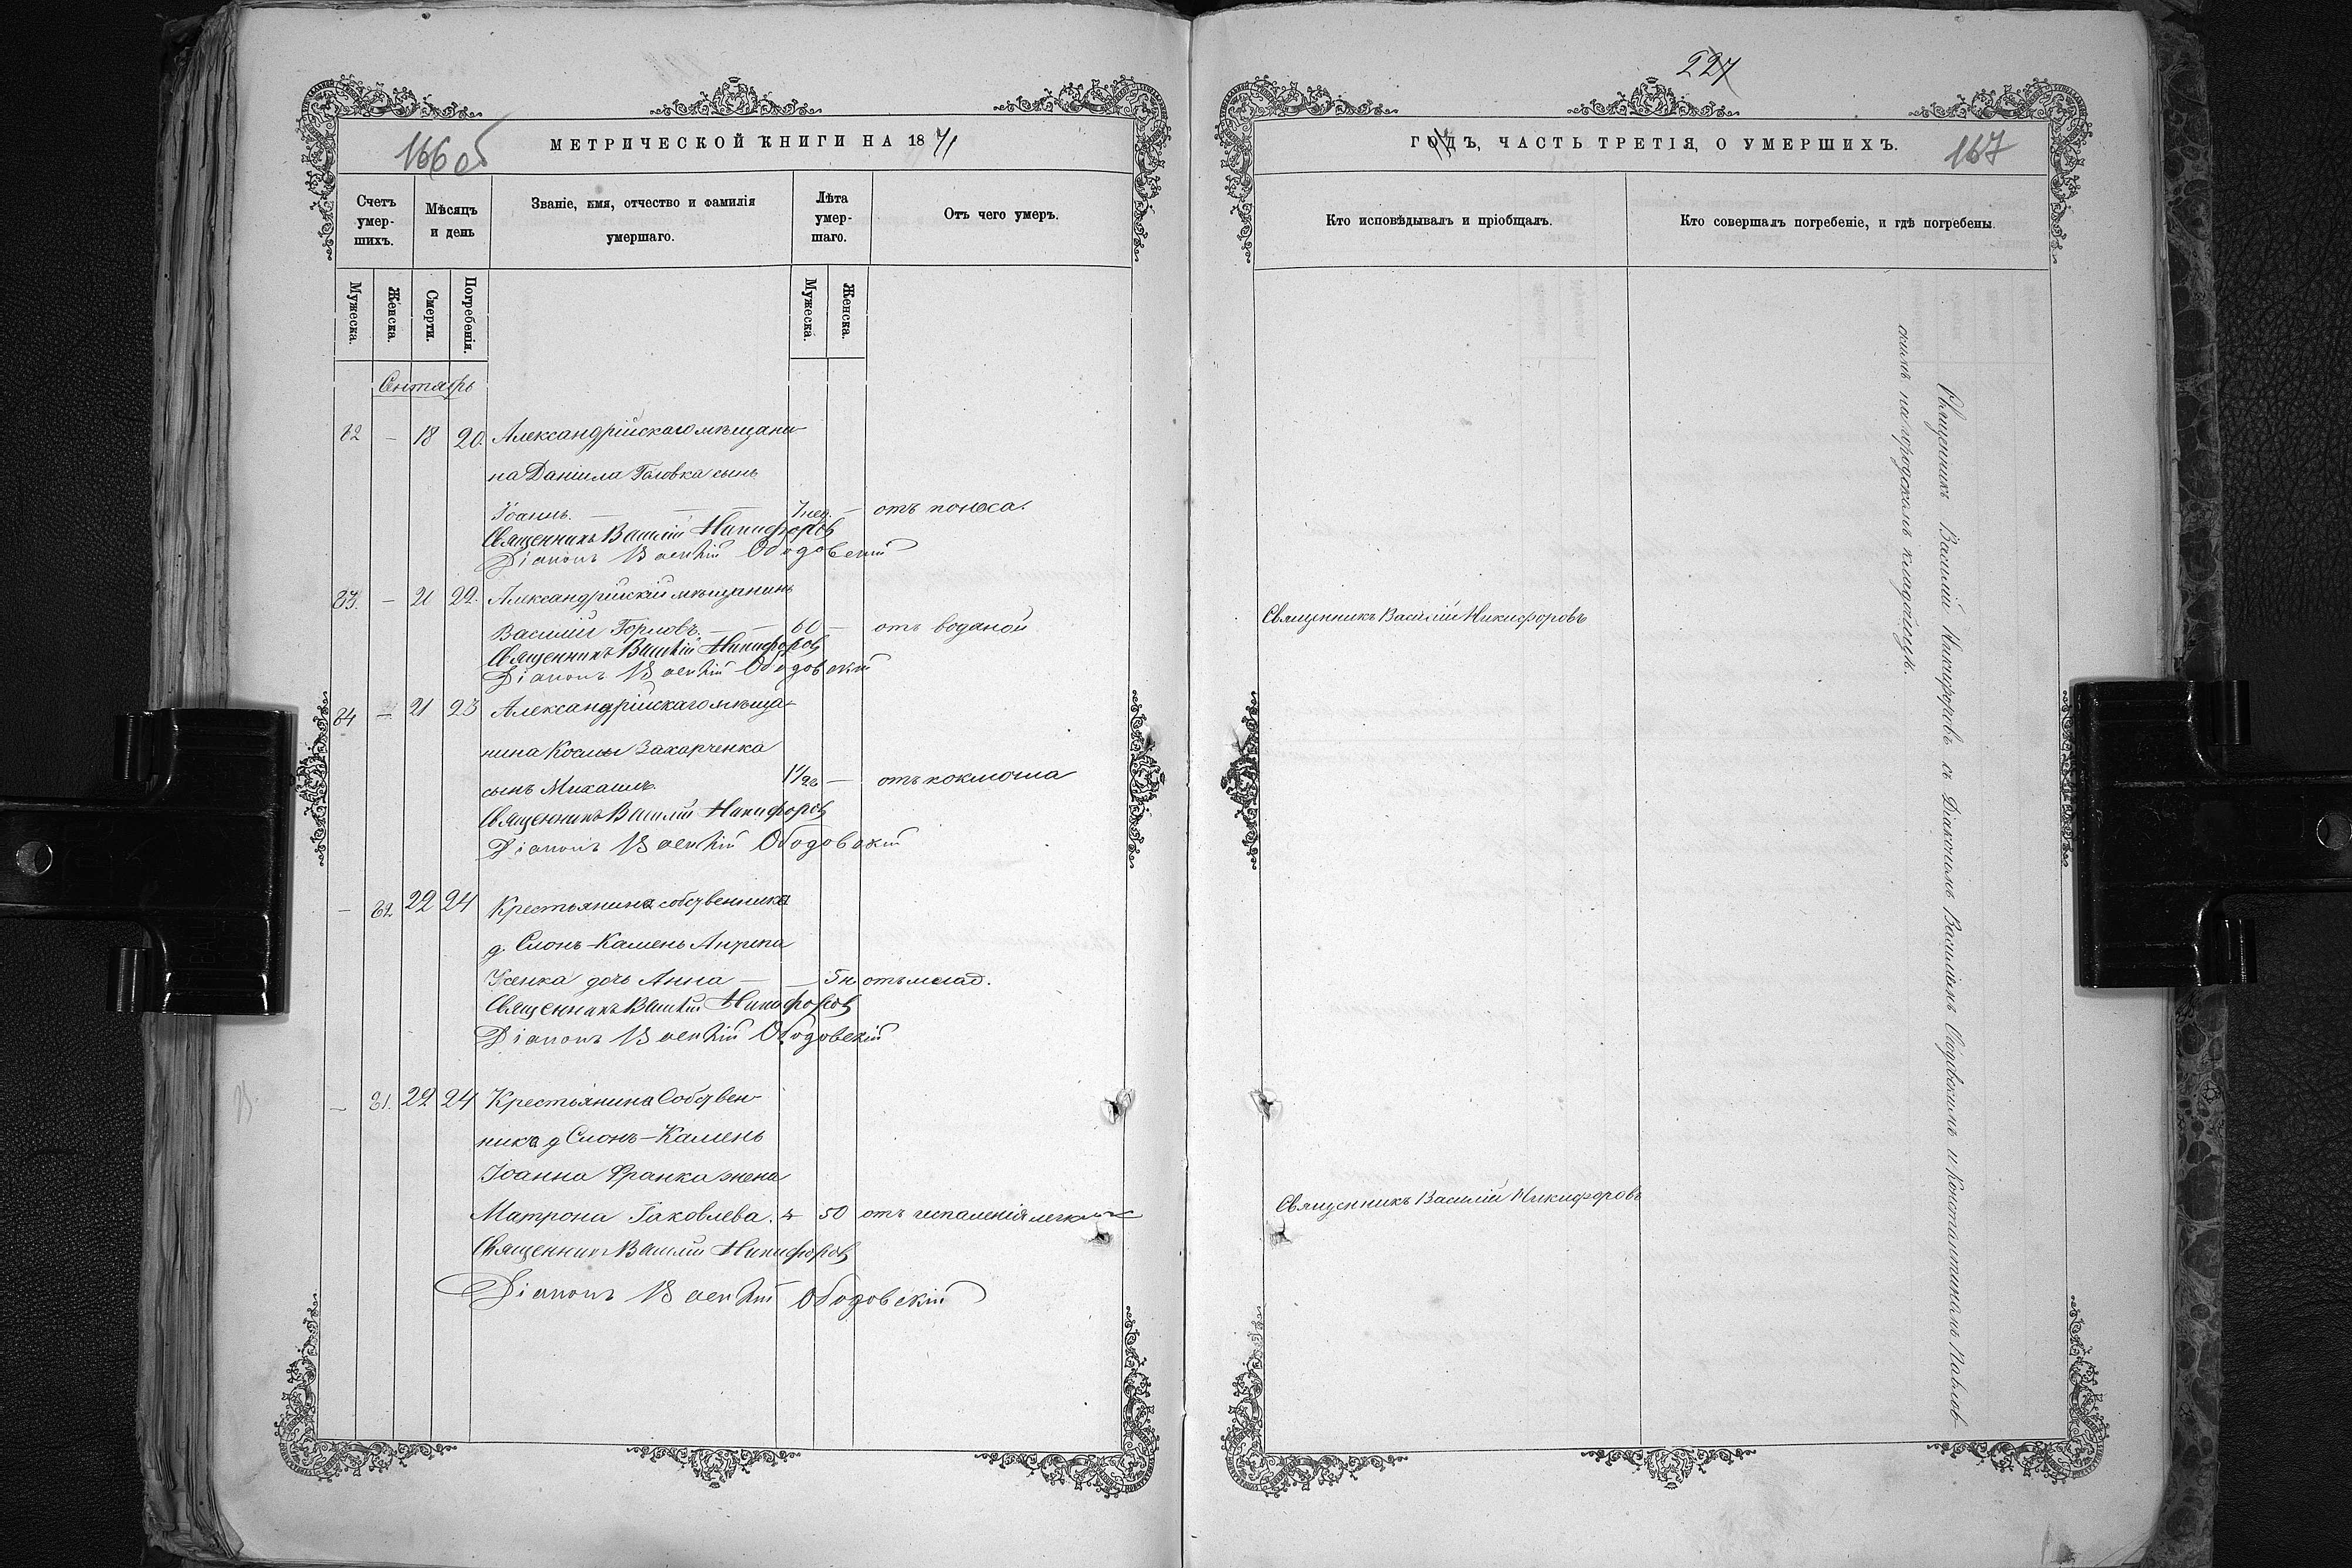 166 об
МЕТРИЧЕСКОЙ КНИГИ НА 1871
Счетъ умер-шихъ.
Мѣсяцъ и день
Званіе, имя, отчество и фамилія умершаго.
Лѣта умер-шаго.
Отъ чего умеръ.
Мужеска.
Женска.
Смерти.
Погребенія.
Мужеска.
Женска.
Сентябрь
82 – 18 20. Александрійскаго мѣщани-
на Даніила Головка сынъ
Іоаннъ. – – – 7 нед. – отъ поноса.
Священникъ Василій Никифоровъ
Діаконъ Василій Ободовскій
83. – 21 22. Александрійскій мѣщанинъ
Василій Горловъ. – – 60 – отъ водяной
Священникъ Василій Никифоровъ
Діаконъ Василій Ободовскій
84 – 21 23 Александрійскаго мѣща-
нина Космы Захарченка
сынъ Михаилъ. – отъ коклюша
Священникъ Василій Никифоровъ
Діаконъ Василій Ободовскій
– 22 24 Крестьянина собственника
д. Слонъ-Камень
дочь Анна – – 5 н отъ млад.
Священникъ Василій Никифоровъ
Діаконъ Василій Ободовскій
– 81. 22 24 Крестьянина Собствен-
ника д Слонъ-Камень
Іоанна Франка жена
Матрона Яковлева. 50 отъ воспаленія легкихъ
Священникъ Василій Никифоровъ
Діаконъ Василій Ободовскій
227
ГОДЪ, ЧАСТЬ ТРЕТІЯ, О УМЕРШИХЪ.
167
Кто исповѣдывалъ и пріобщалъ.
Кто совершалъ погребеніе, и гдѣ погребены.
Священникъ Василій Никифоровъ
Священникъ Василій Никифоровъ
Священникъ Василій Никифоровъ съ Діакономъ Василіемъ Ободовскимъ и Константиномъ Павлов-
скимъ на городскомъ кладбищѣ.